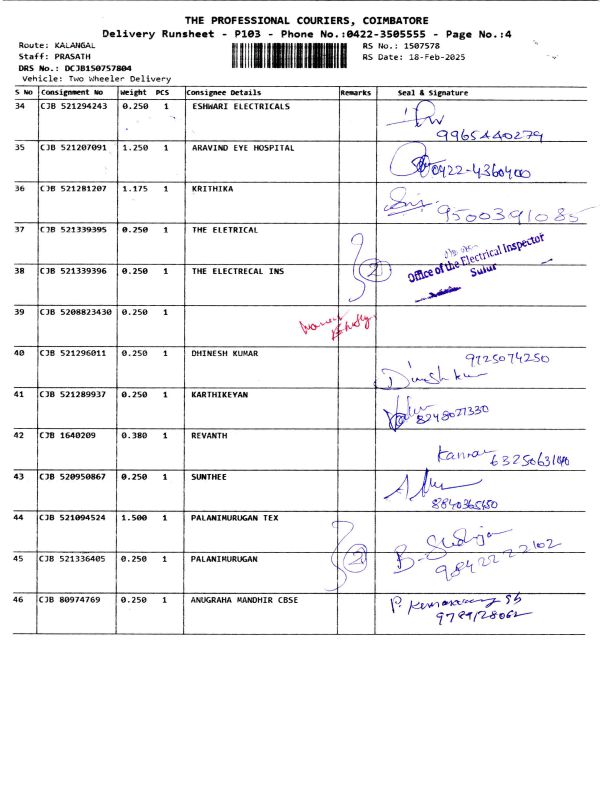 THE PROFESSIONAL COURIERS, COIMBATORE
Delivery Runsheet - P103 - Phone No.:0422-3505555 - Page No.:4
Route: KALANGAL RS No.: 1507578
Staff: PRASATH RS Date: 18-Feb-2025
DRS No.: DCJB150757804
Vehicle: Two Wheeler Delivery
S No Consignment No Weight PCS Consignee Details Remarks Seal & Signature
34 CJB 521294243 0.250 1 ESHWARI ELECTRICALS
9965440279
35 CJB 521207091 1.250 1 ARAVIND EYE HOSPITAL
0422-4360400
36 CJB 521281207 1.175 1 KRITHIKA
9500391085
37 CJB 521339395 0.250 1 THE ELETRICAL
Office of the Electrical Inspector
Sulur
38 CJB 521339396 0.250 1 THE ELECTRECAL INS 2
39 CJB 5208823430 0.250 1
40 CJB 521296011 0.250 1 DHINESH KUMAR
9725074250
Dinesh
41 CJB 521289937 0.250 1 KARTHIKEYAN
8248077330
42 CJB 1640209 0.380 1 REVANTH
43 CJB 520950867 0.250 1 SUNTHEE
44 CJB 521094524 1.500 1 PALANIMURUGAN TEX
45 CJB 521336405 0.250 1 PALANIMURUGAN 2
9842222102
46 CJB 80974769 0.250 1 ANUGRAHA MANDHIR CBSE
9789128062